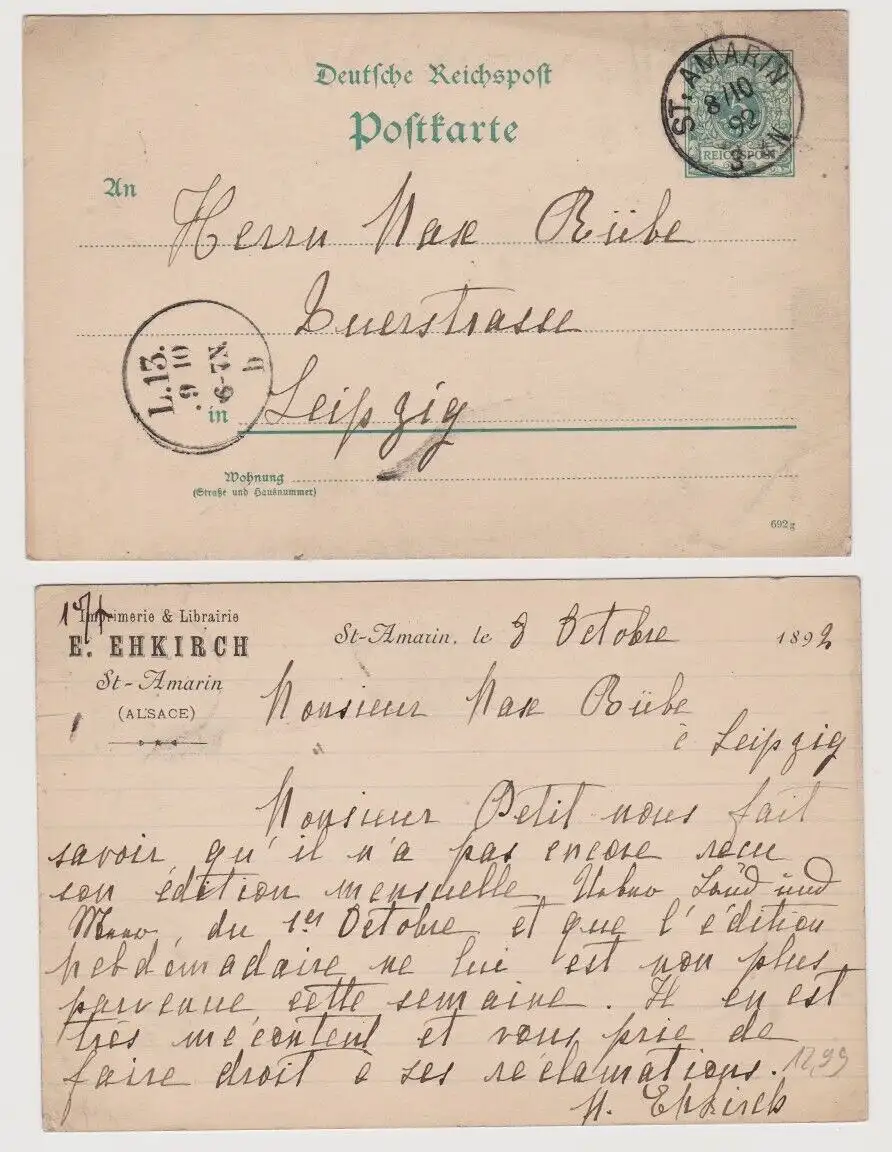 Deutsche Reichspost
Postkarte
ST. AMARIN
8/10
92
3 N
REICHSPOST
An
Herrn Max Rübe
Querstrasse
L.13.
9 10
6-7N.
b
in Leipzig
Wohnung
(Straße und Hausnummer)
692g
Imprimerie & Librairie
E. EHKIRCH
St-Amarin
(ALSACE)
St-Amarin, le 8 Octobre 1892
Monsieur Max Rübe
à Leipzig
Monsieur Petit nous fait
savoir qu'il n'a pas encore recu
son édition mensuelle Ueber Land und
Meer du 1er Octobre et que l'édition
hebdémadaire ne lui est non plus
parvenue cette semaine. Il en est
très mécontent et vous prie de
faire droit à ses réclamations.
12,99
Ehkirch